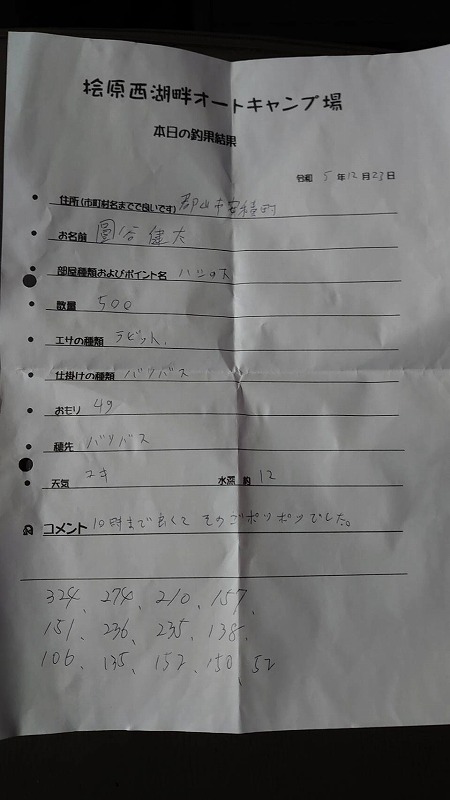 桧原西湖畔オートキャンプ場
本日の釣果結果
令和 5 年 12 月 23 日
住所(市町村名までで良いです) 郡山市安積町
お名前 圓谷健太
部屋種類およびポイント名
数量 500
エサの種類 ラビット、
仕掛けの種類 バリバス
おもり 4g
穂先 バリバス
天気 ユキ 水深 約 12
コメント 10時まで良くて そのごポツポツでした。
324、274、210、157、
151、236、235、138、
106、135、152、150、52